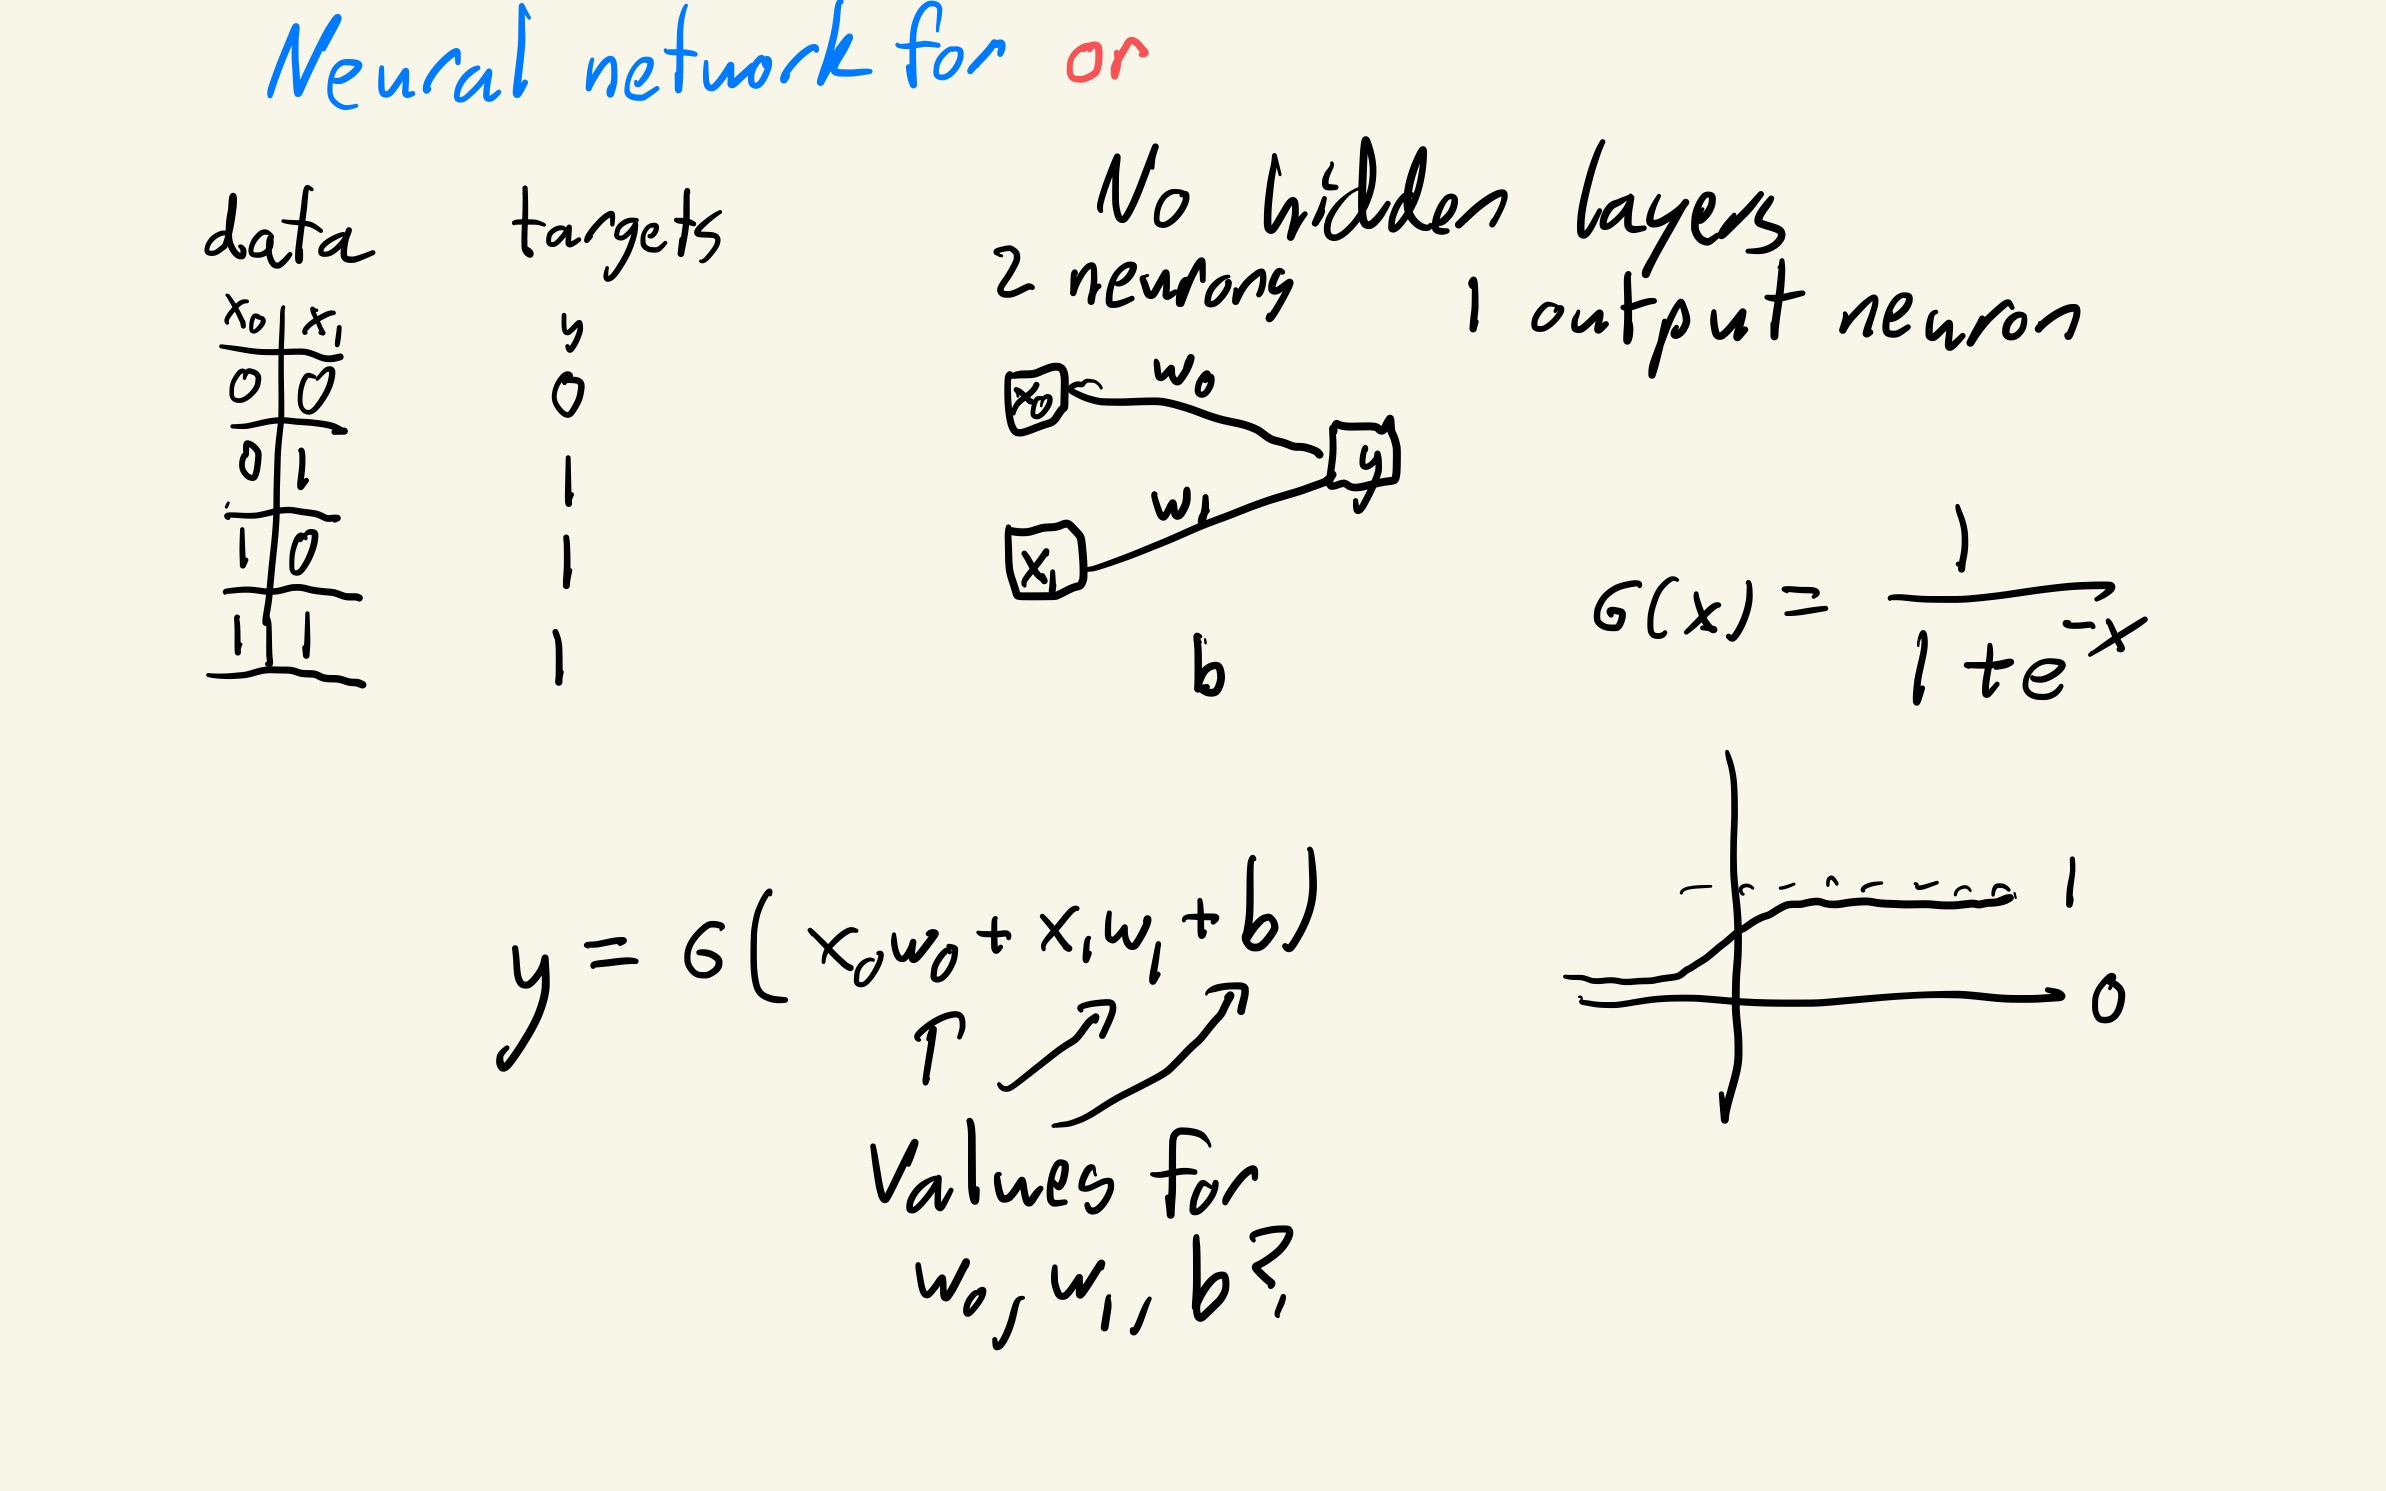 Neural network for or
data targets
x₀ x₁ y
0 0 0
0 1 1
1 0 1
1 1 1
No hidden layers
2 neurons 1 output neuron
x₀ w₀
y
w₁
x₁
b
σ(x) = 1 / (1 + e^-x)
1
0
y = σ(x₀w₀ + x₁w₁ + b)
Values for
w₀, w₁, b?